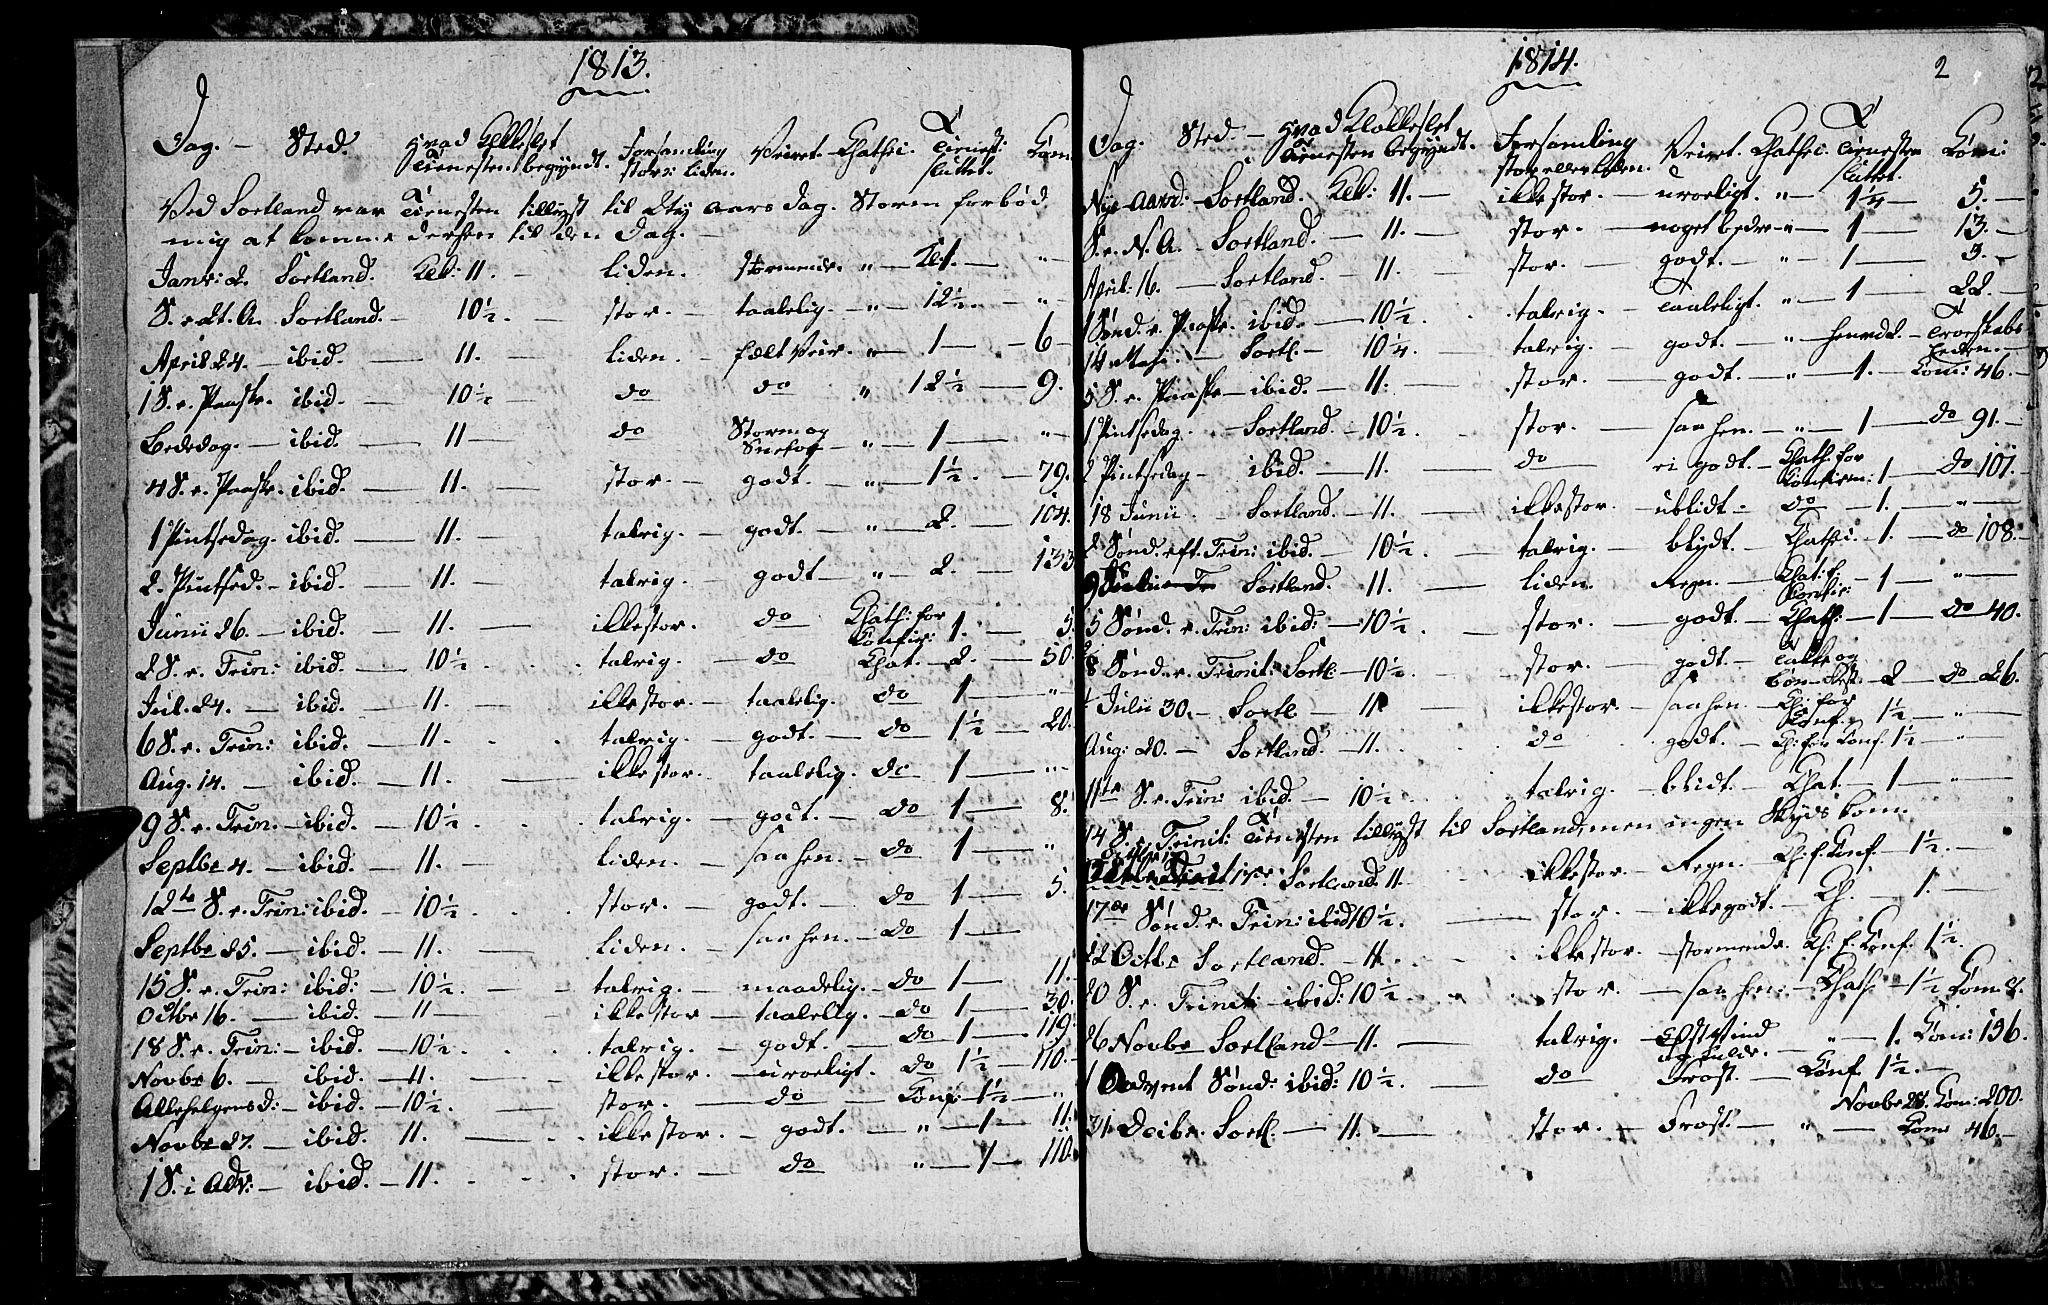 1813.
Dag. - Sted. Hvad Klokkeslet Forsamling Veiret. Chathi. Tienest: Com:
Tienesten begyndt. stor: liden. sluttet.
Ved Sortland var Tienesten tillyst til Nty aars dag. Storm forbød
mig at komme derhen til den Dag. -
Janr: 2. Sortland. Kl: 11. - liden. stormende. " - Kl 1. - "
S. e. N. A. Sortland. - 10½. - stor. - taalelig. - " - 12½. - "
April 24. - ibid. - 11. - liden. - fælt Veir. " - 1 - 6
1 S. e. Paaske. ibid. - 10½ - do do " 12½ - 9.
Bededag. - ibid. - 11 - do Storm og
Snefog " - 1 - "
4 S. e. Paaske. ibid. - 11. - stor. - godt. - " - 1½. - 79.
1 Pintsedag. ibid. - 11. - talrig. - godt. - " - 2. - 104.
2. Pintsed. - ibid. - 11. - talrig. - godt - " - 2. - 133
Junii 26. - ibid. - 11. - ikke stor. - do Chath: for
Confir: 1. - 5.
2 S. e. Trin: ibid. - 10½ . . talrig. - do Chat. - 2. - 50.
Jul. 24. - ibid. - 11. - ikke stor. - taalelig. do - 1 - "
6 S. e. Trin: ibid. - 11. . . talrig. - godt. - do - 1½ - 20.
Aug. 14. - ibid. - 11. - ikke stor. taalelig. do - 1 - "
9 S. e. Trin. - ibid. - 10½ . . talrig. - godt. - do 1 - 8.
Septbr 4. - ibid. - 11. - liden. - saa hen. - do - 1 - "
12te S. e. Trin: ibid. - 10½ . . stor. - godt. - do 1 - 5.
Septbr 25. - ibid. - 11. - liden. - saa hen. - do 1 -
15 S. e. Trin: ibid: - 10½ - talrig. - maadelig. - do 1 - 11.
Octbr 16. - ibid. - 11 - ikke stor - taalelig. - do 1 - 30.
18 S. e. Trin: - ibid. - 10½. . . talrig. - godt. - do - 1 - 119.
Novbr 6. - ibid. - 11. - ikke stor. - uroeligt. do 1½ - 110.
Allehelgensd: - ibid. - 10½. - stor. - do - Conf: 1½ - "
Novbr 27. - ibid. 11. - ikke stor. - godt. - " - 1 - 11.
1 S. i Adv: - ibid. - 11. . . stor. - do " - 1 - 110.
1814.
2
Dag. Sted. - Hvad Klokkeslet Forsamling Veiret. Chathi. Tienesten Com:
Tienesten begyndt. stor eller liden. sluttet.
Nye Aard: - Sortland. Kl: 11. - ikke stor. - uroeligt. " - 1¼ - 5. -
S. e. N. A. - Sortland. - 11. - stor. - noget bedre - " - 1 - 13. -
April: 16. - Sortland - 11. - stor. - godt. - " - 1 - 3. -
1 Sønd. e. Paaske. ibid. - 10½. . talrig. - taaleligt. " - 1 - 22. -
14 Maji. - Sortl. - 10¼. - talrig. - godt. - " -
5 S. e. Paaske - ibid. - 11. - stor. - godt. - " - 1. - Com: 46. -
1 Pintsedag. - Sortland. - 10½. . stor. - saa hen. - " - 1 - do 91. -
2 Pintsedag - ibid. - 11. - do ei godt. - Chath: for
Confirm: 1 - do 107. -
18 Junii. - Sortland. - 11. - ikke stor. - ublidt. - do - 1. - "
2 Sønd. eft. Trin: ibid. - 10½ - talrig. - blidt. - Chathi. - 1. - do 108. -
9 Sortland. 11. - liden. Regn. - Chat: f.
Confir: - 1 - "
5 Sønd. e. Trin: ibid: - 10½ - stor. - godt. - Chath: - 1 - do 40.
8 Sønd. e. Trinit: Sortl: - 10½. stor. - godt. - Takke og
Bøn-Fest: - 2 - do 26.
Julii 30. - Sortl - 11 ikke stor. - saa hen. - Ch: for
Conf: - 1½ - "
Aug: 20. - Sortland. - 11. . do . godt. - Ch: for Conf. 1½ - "
11te S. e. Trin: ibid. - 10½ . talrig. - blidt. - Chat. - 1 - "
14 S. e. Trinit: Tienesten tillyst til Sortland, men ingen Skyds kom.
Sortland 11. . . ikke stor - Regn. - Ch. f. Conf. - 1½. -
17de Sønd. e. Trin: ibid 10½. - stor. - ikke godt. - Ch. - 1. -
22 Octbr Sortland. - 11. . . ikke stor. - stormende. Ch. f. Conf. 1½. -
20 S. e. Trinit: - ibid: 10½. . stor. - saa hen: - Chath - 1½ Com
26 Novbr Sortland - 11. - talrig. - Østvind
og Kulde. - " - 1. Com: 196.
1 Advent Sønd: ibid: 10½. - do Frost. - Conf. 1½. -
Novbr 28. Com: 200.
31 Decbr. Sortl. - 11. - stor. - Frost. - " - Com 46. -